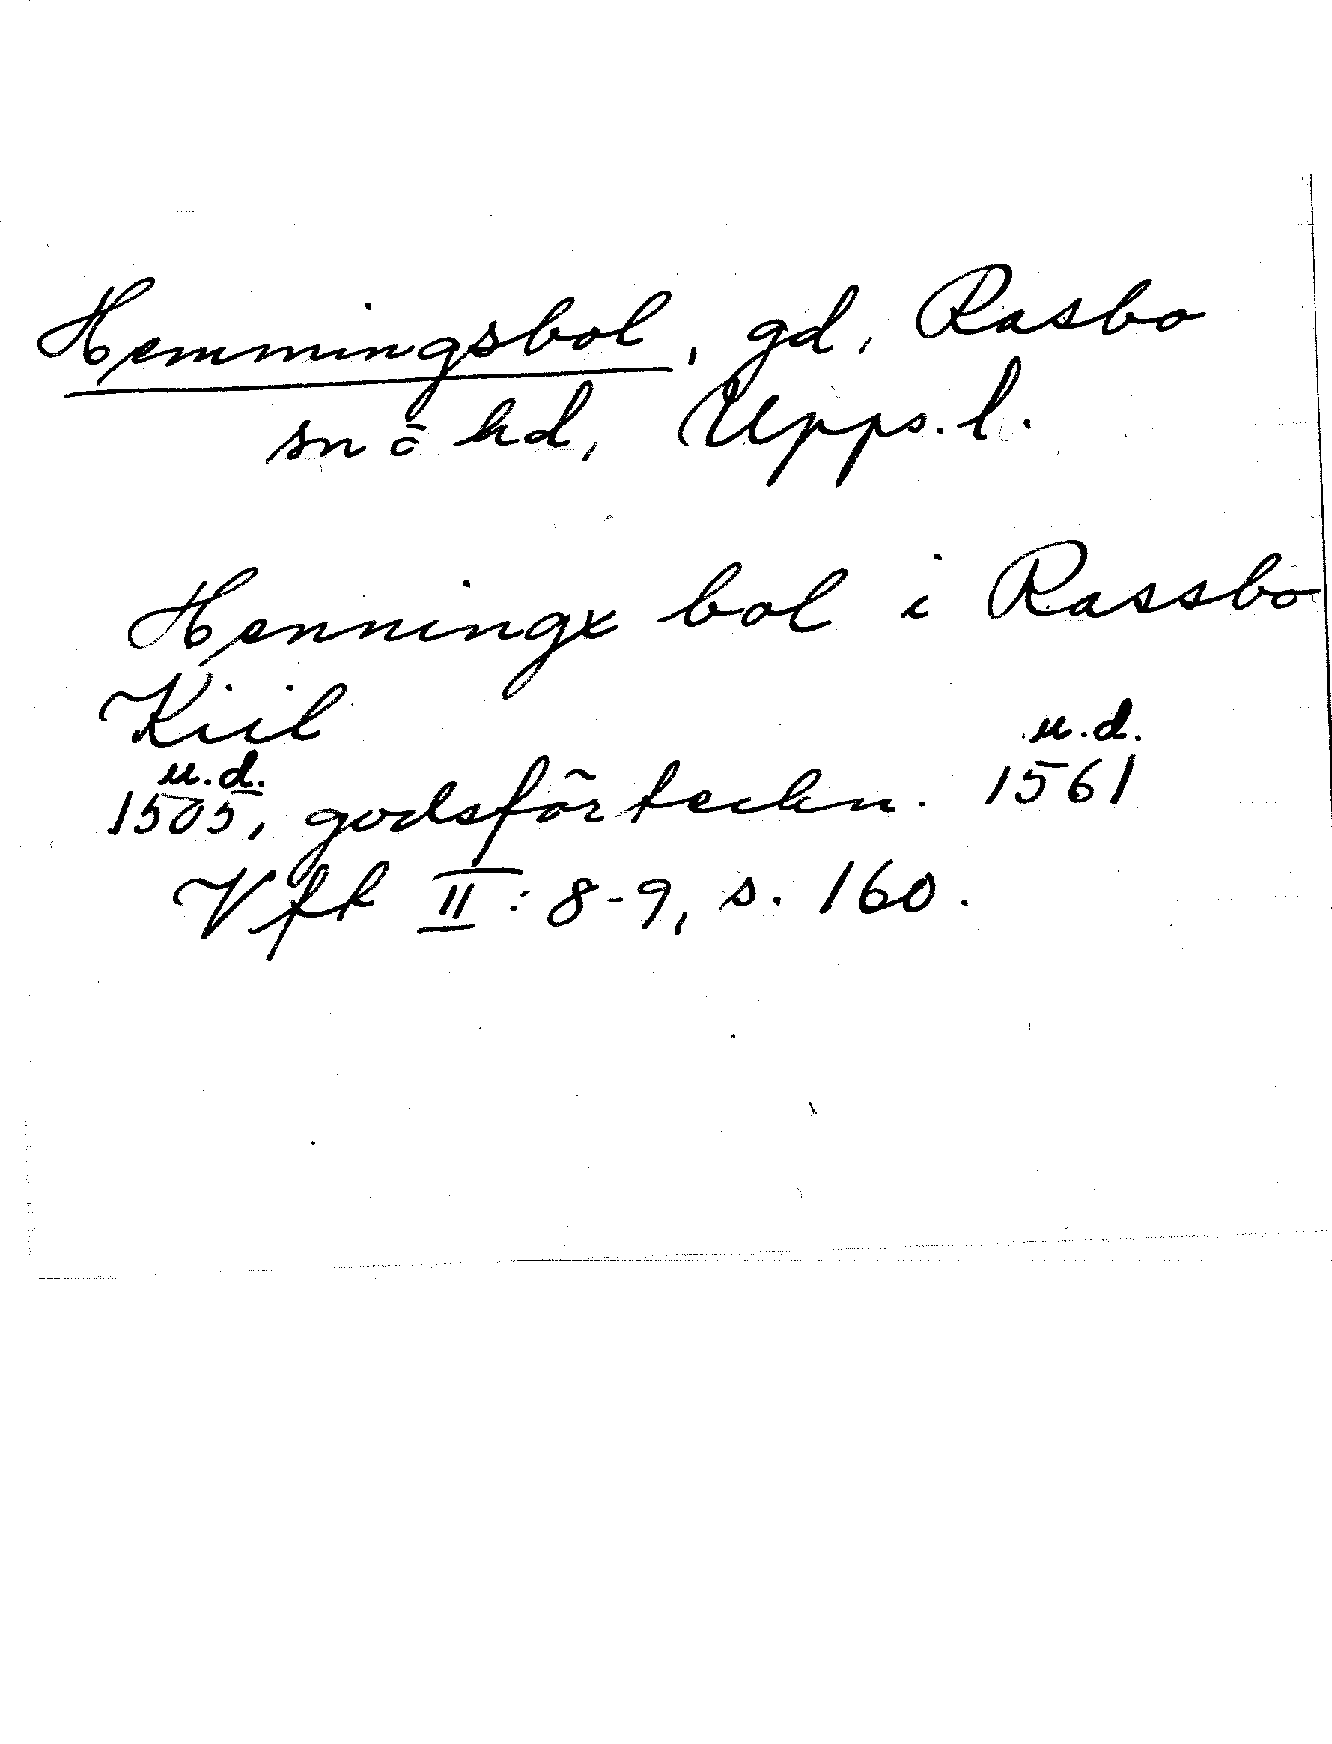 Hemmingsbol, gd, Rasbo
sn o hd, Upps. l.
Henningx bol i Rassbo
Kiil
u.d. u.d.
1505, godsförteckn. 1561
Vfk II: 8-9, s. 160.